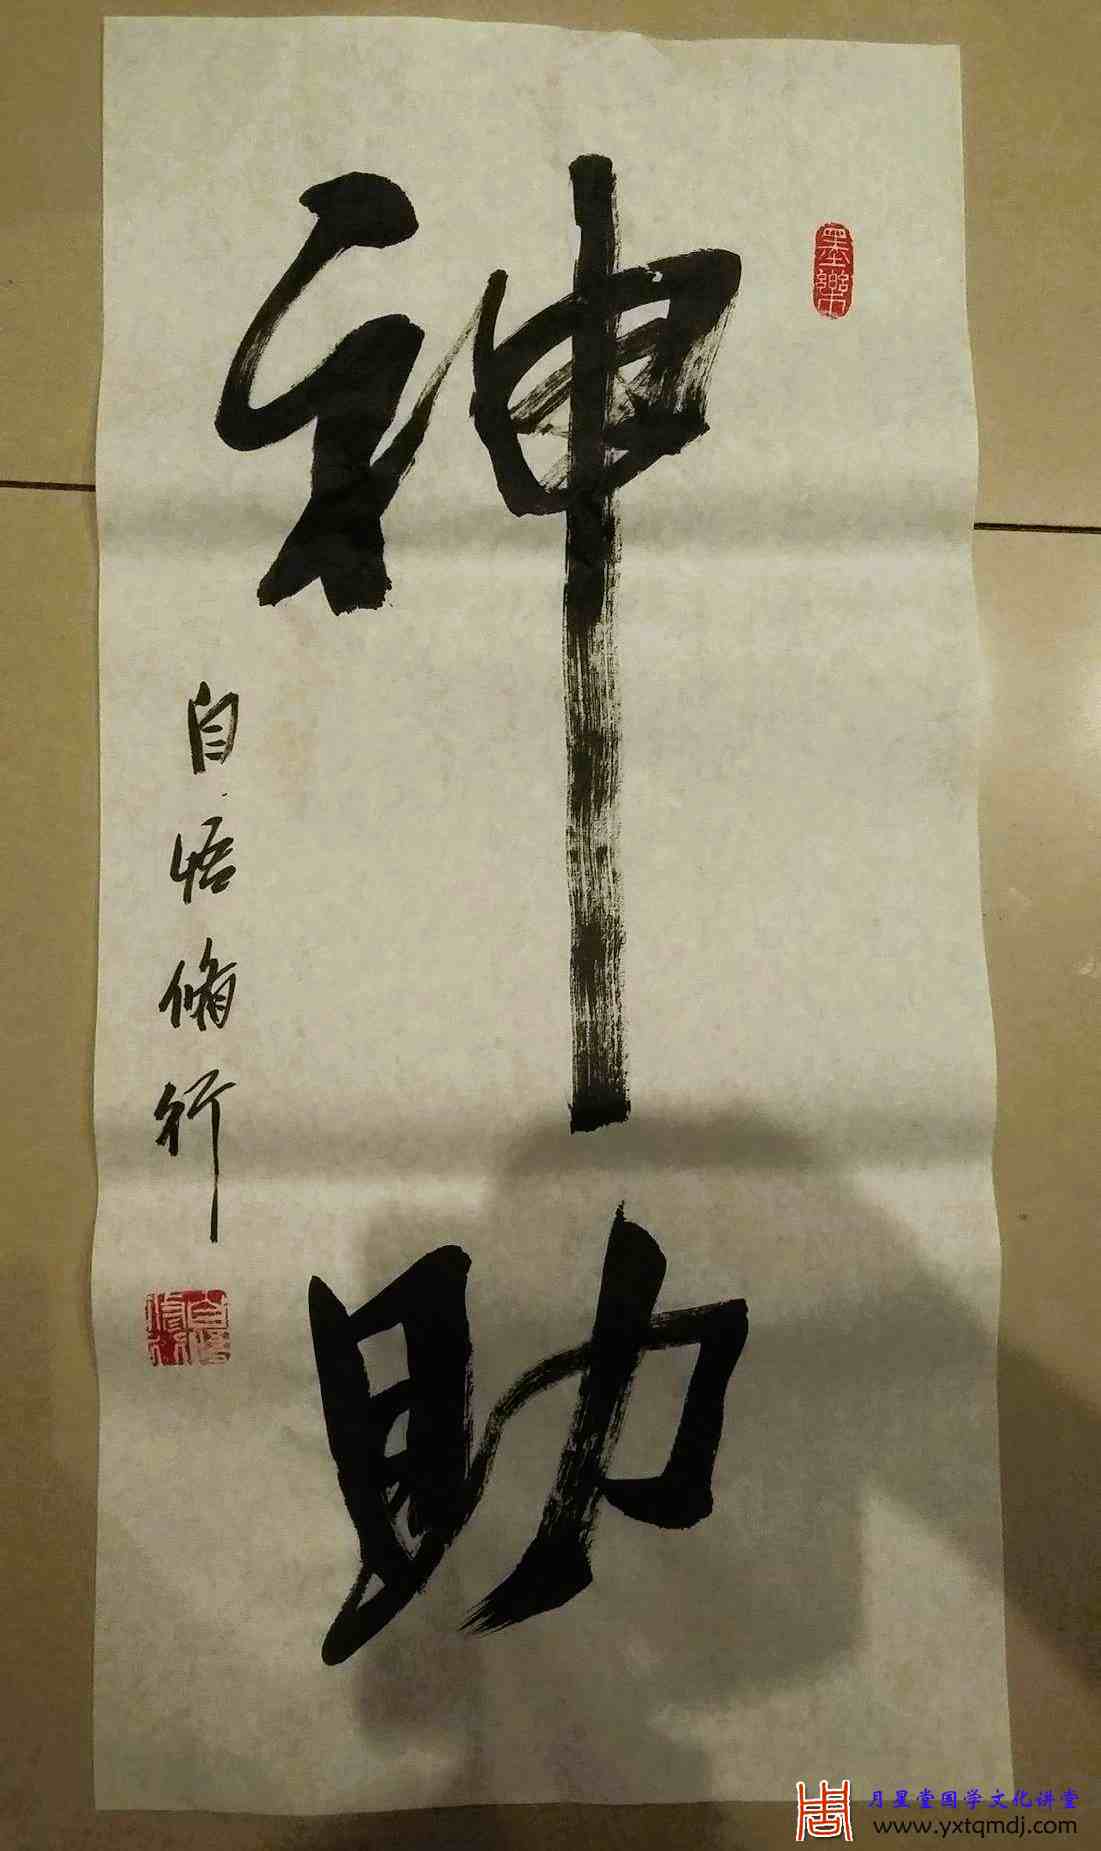 神助
墨樂
自悟脩行
自悟修行
月星堂国学文化讲堂
www.yxtqmdj.com